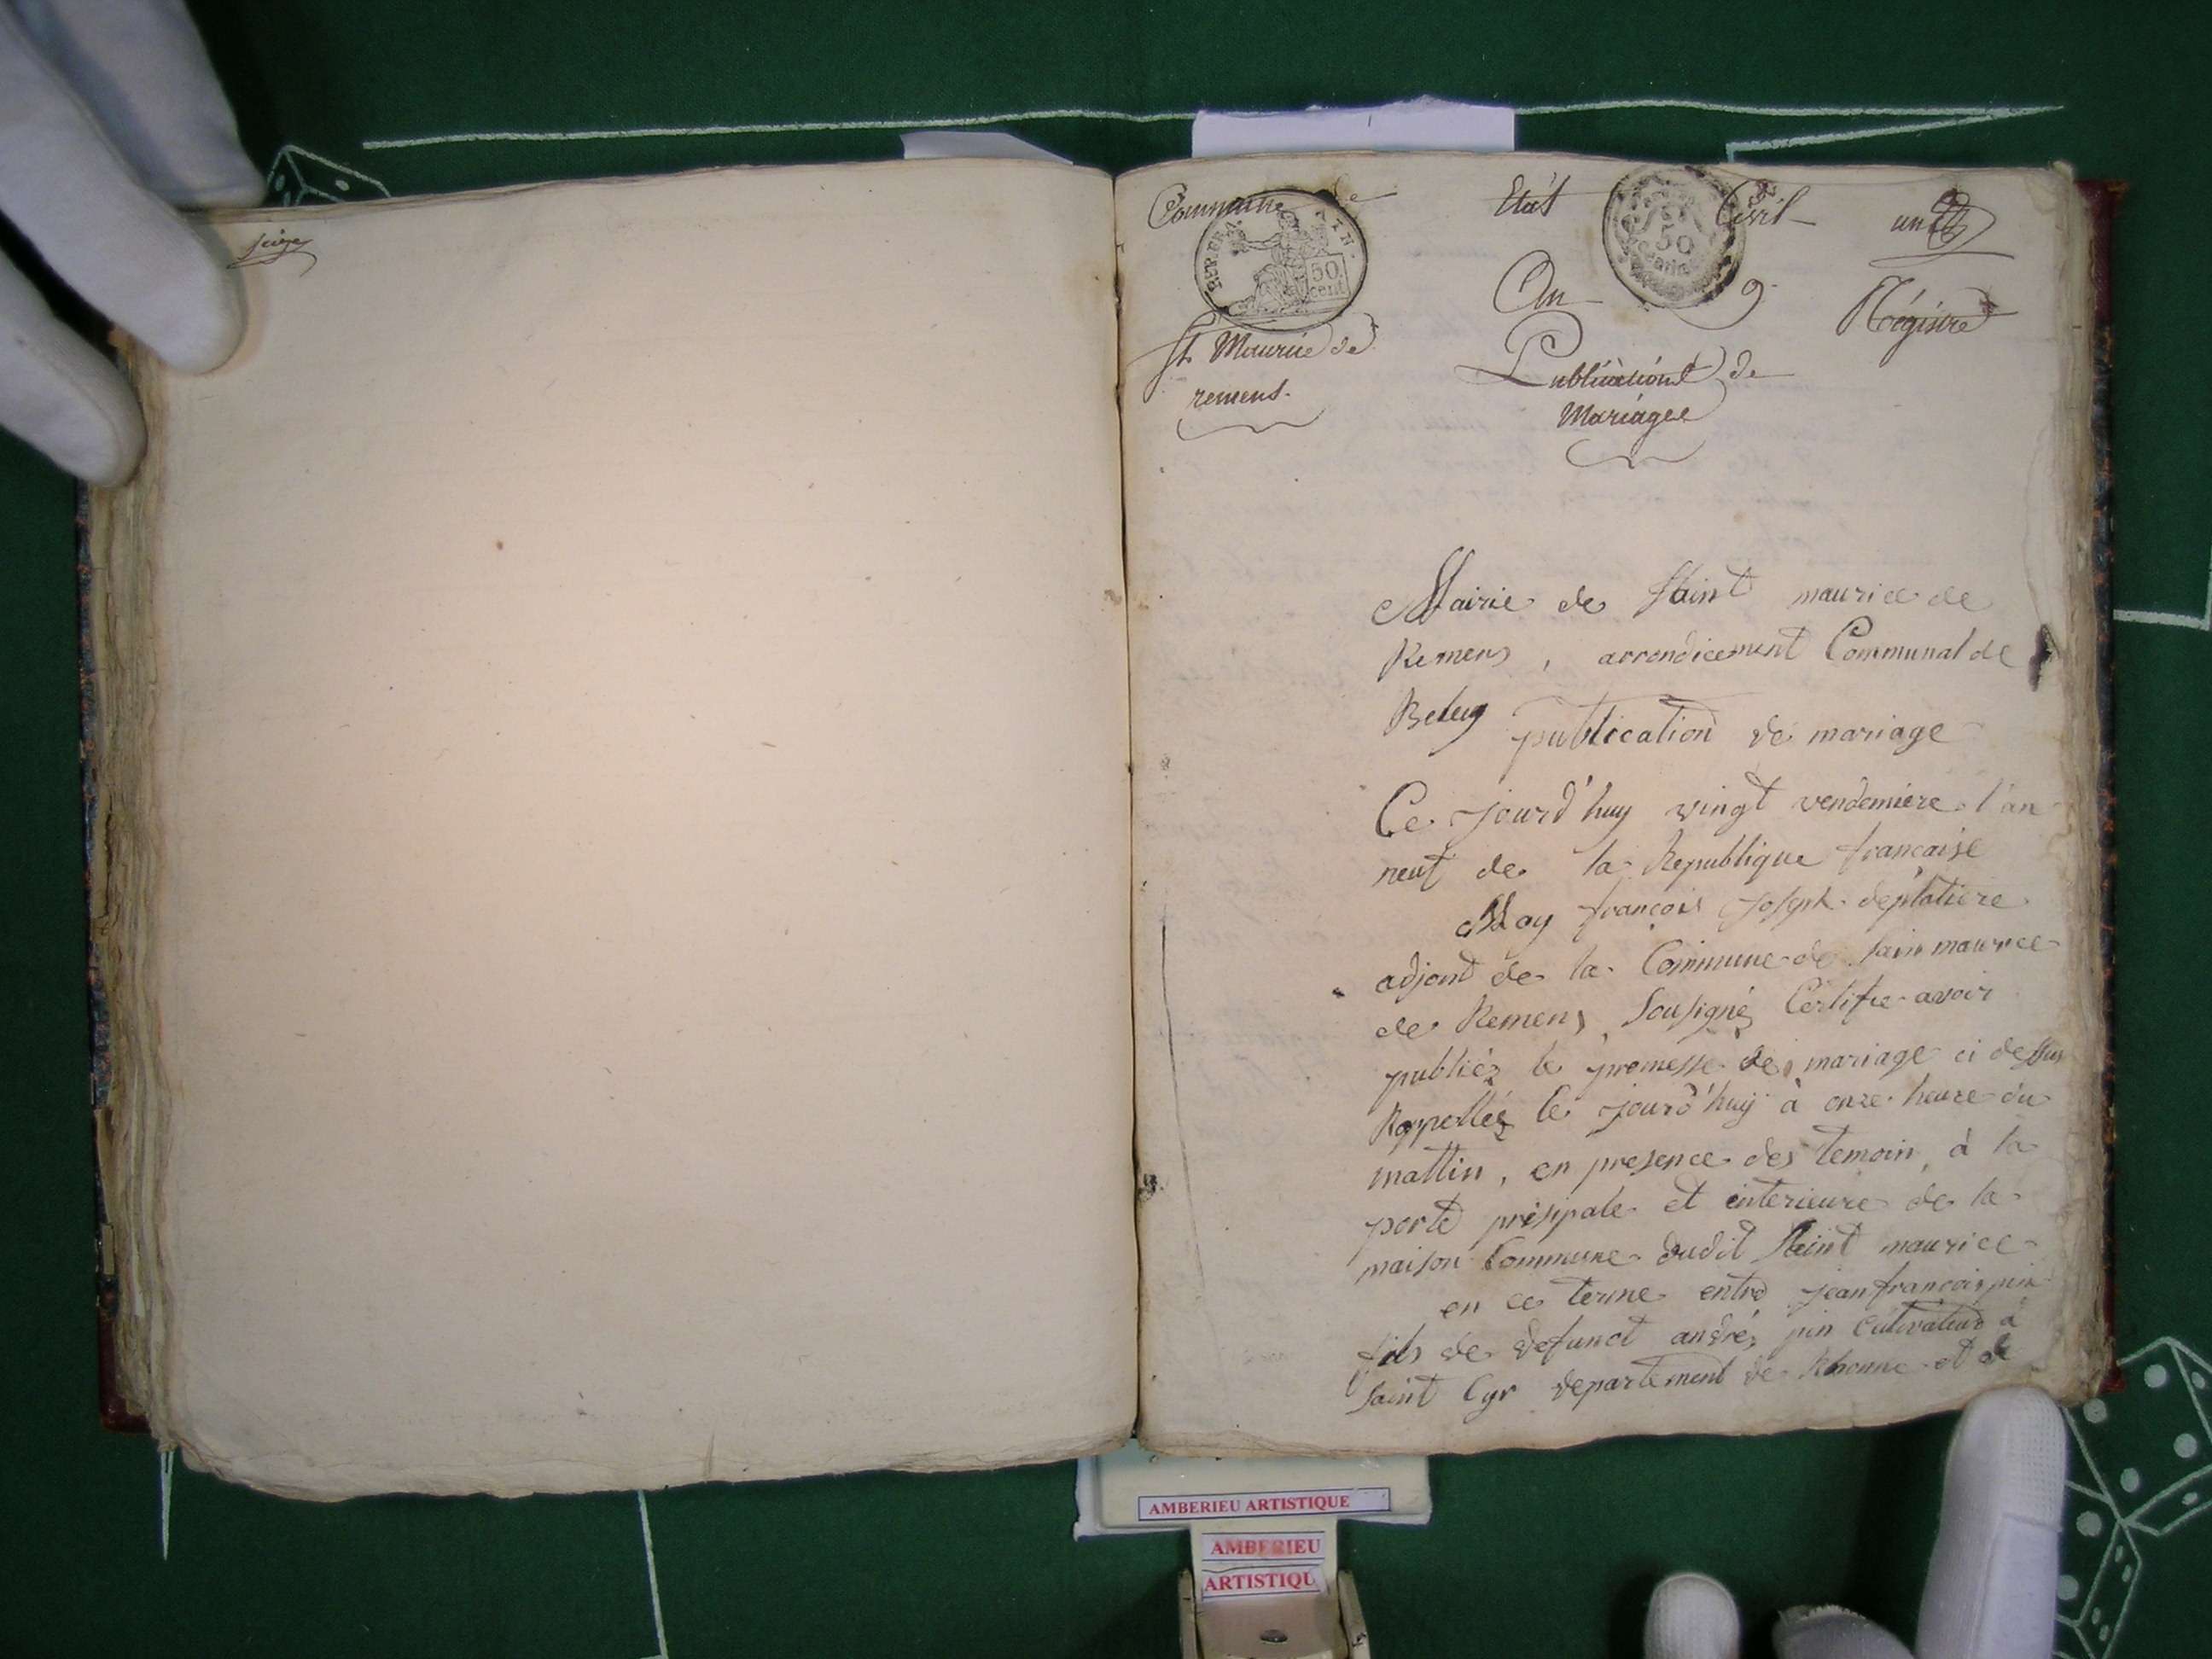 seize
Commune de
Etat Civil
un
REP. FRA. TIN.
50
cent
50
An 9.
Régistre
St. Maurice de
remens.
Publications de
Mariages
Mairie de Saint maurice de
Remens, arrondicement Communal de
Beley
publication de mariage
Ce jourd'huy vingt vendemiere l'an
neuf de la Republique francaise
Moy françois Joseph deplatiere
adjont de la Commune de Sain maurice
de Remens, Sousigné Certifie avoir
publiéz le promesse de mariage ci dessus
Rappelléz le jourd'huy à onze heure du
mattin, en presence des temoin, à la
porte prisipale et interieure de la
maison Commune dudit Saint maurice
en ce terme entre jean françois pin
fils de defunct andréz pin Cultivateur à
Saint Cyr departement de Rhonne et de
AMBERIEU ARTISTIQUE
AMBERIEU
ARTISTIQU